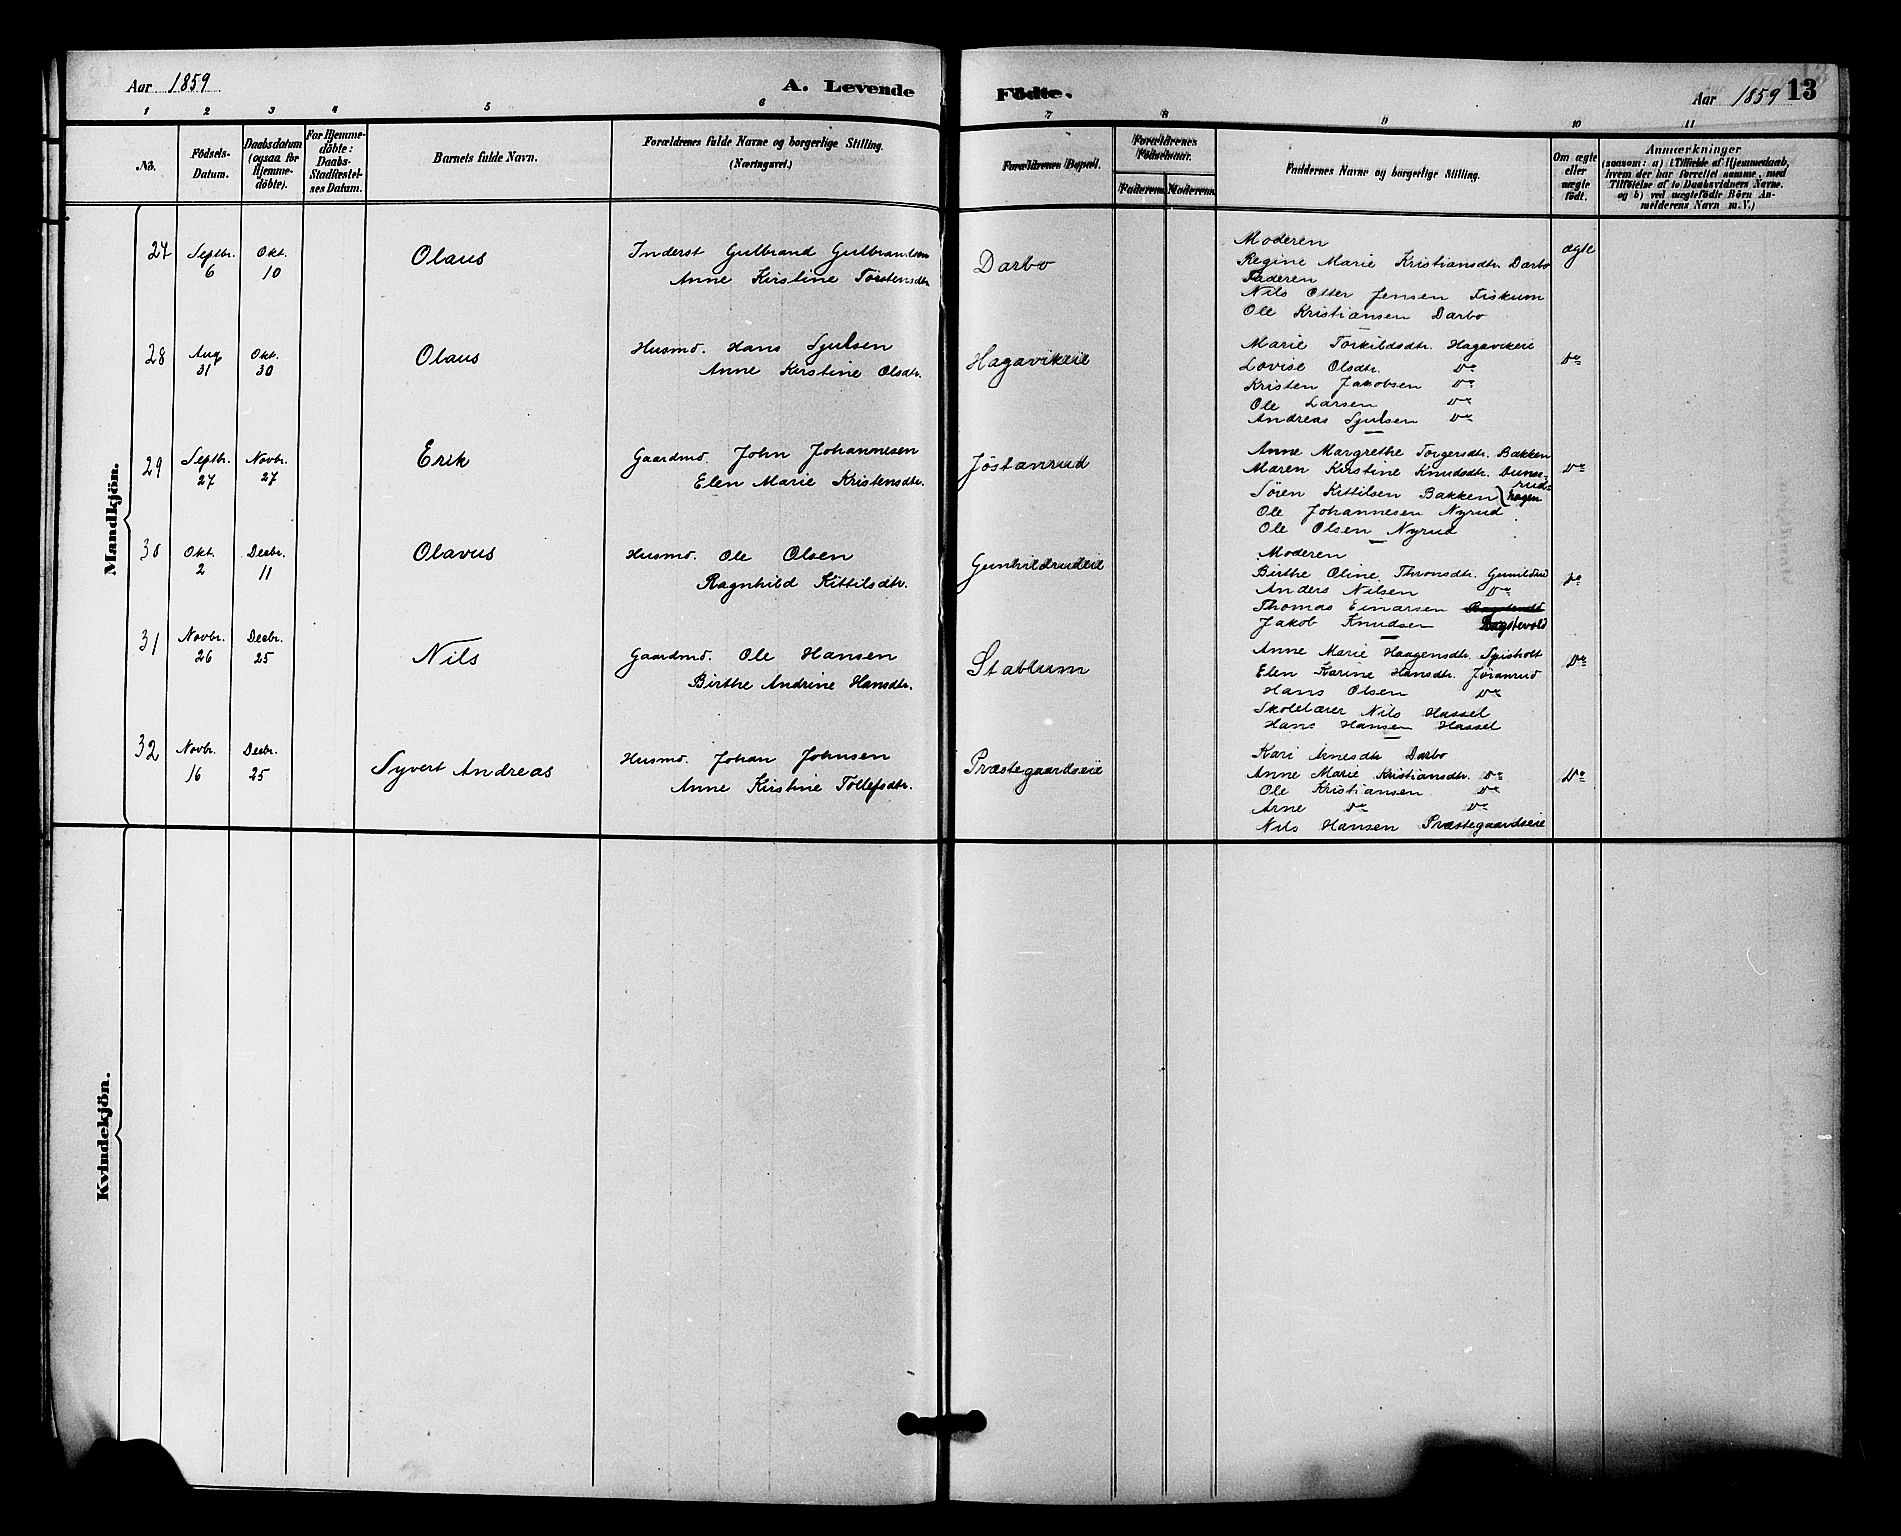 Aar 1859
A. Levende Födte.
Aar 1859 13
1 2 3 4 5 6 7 8 9 10 11
No.
Födsels-Datum.
Daabsdatum (ogsaa for Hjemmedöbte).
For Hjemmedöbte: Daabs-Stadfæstelses Datum.
Barnets fulde Navn.
Forældrenes fulde Navne og borgerlige Stilling. (Næringsvei.)
Forældrenes Bopæl.
Forældrenes Födselsaar.
Faderens Moderens
Faddernes Navne og borgerlige Stilling.
Om ægte eller uægte födt.
Anmærkninger
(saasom: a) i Tilfælde af Hjemmedaab, hvem der har forrettet samme, med Tilföielse af to Daabsvidners Navne. og b) ved uægtefödte Börn Anmelderens Navn m. V.)
Mandkjön.
27 Septbr. 6 Okt. 10 Olaus
Inderst Gulbrand Gulbrandsen
Anne Kirstine Torstensdtr.
Darbo
Moderen
Regine Marie Kristiansdtr. Darbo
Faderen
Nils Otter Jensen Fiskum
Ole Kristiansen Darbo
ægte
28 Aug. 31 Okt. 30 Olaus
Husmd. Hans Sjulsen
Anne Kirstine Olsdtr.
Hagavikeie
Marie Torkildsdtr. Hagavikeie
Lovise Olsdtr. Do
Kristen Jakobsen Do
Ole Larsen Do
Andreas Sjulsen Do
Do
29 Septbr. 27 Novbr. 27 Erik
Gaardmd. John Johannesen
Elen Marie Kristensdtr.
Jöstanrud
Anne Margrethe Torgersdtr. Bakken
Maren Kirstine Knudsdtr.
Sören Kittilsen Bakken hagen
Ole Johannesen Nyrud
Ole Olsen Nyrud
Do
30 Okt. 2 Decbr. 11 Olavus
Husmd. Ole Olsen
Ragnhild Kittilsdtr.
Gunhildrudeie
Moderen
Birthe Oline Thronsdtr.
Anders Nilsen Do
Thomas Einarsen
Jakob Knudsen
Do
31 Novbr. 26 Decbr. 25 Nils
Gaardmd. Ole Hansen
Birthe Andrine Hansdtr.
Stablum
Anne Marie Haagensdtr.
Elen Karine Hansdtr. Jöranrud
Hans Olsen Do
Skolelærer Nils Hassel
Hans Hansen Hassel
Do
32 Novbr. 16 Decbr. 25 Syvert Andreas
Husmd. Johan Johnsen
Anne Kirstine Tollefsdtr.
Præstegaardseie
Kari Arnesdtr Darbo
Anne Marie Kristiansdtr. Do
Ole Kristiansen Do
Arne Do Do
Nils Hansen Præstegaardseie
Do
Kvindekjön.